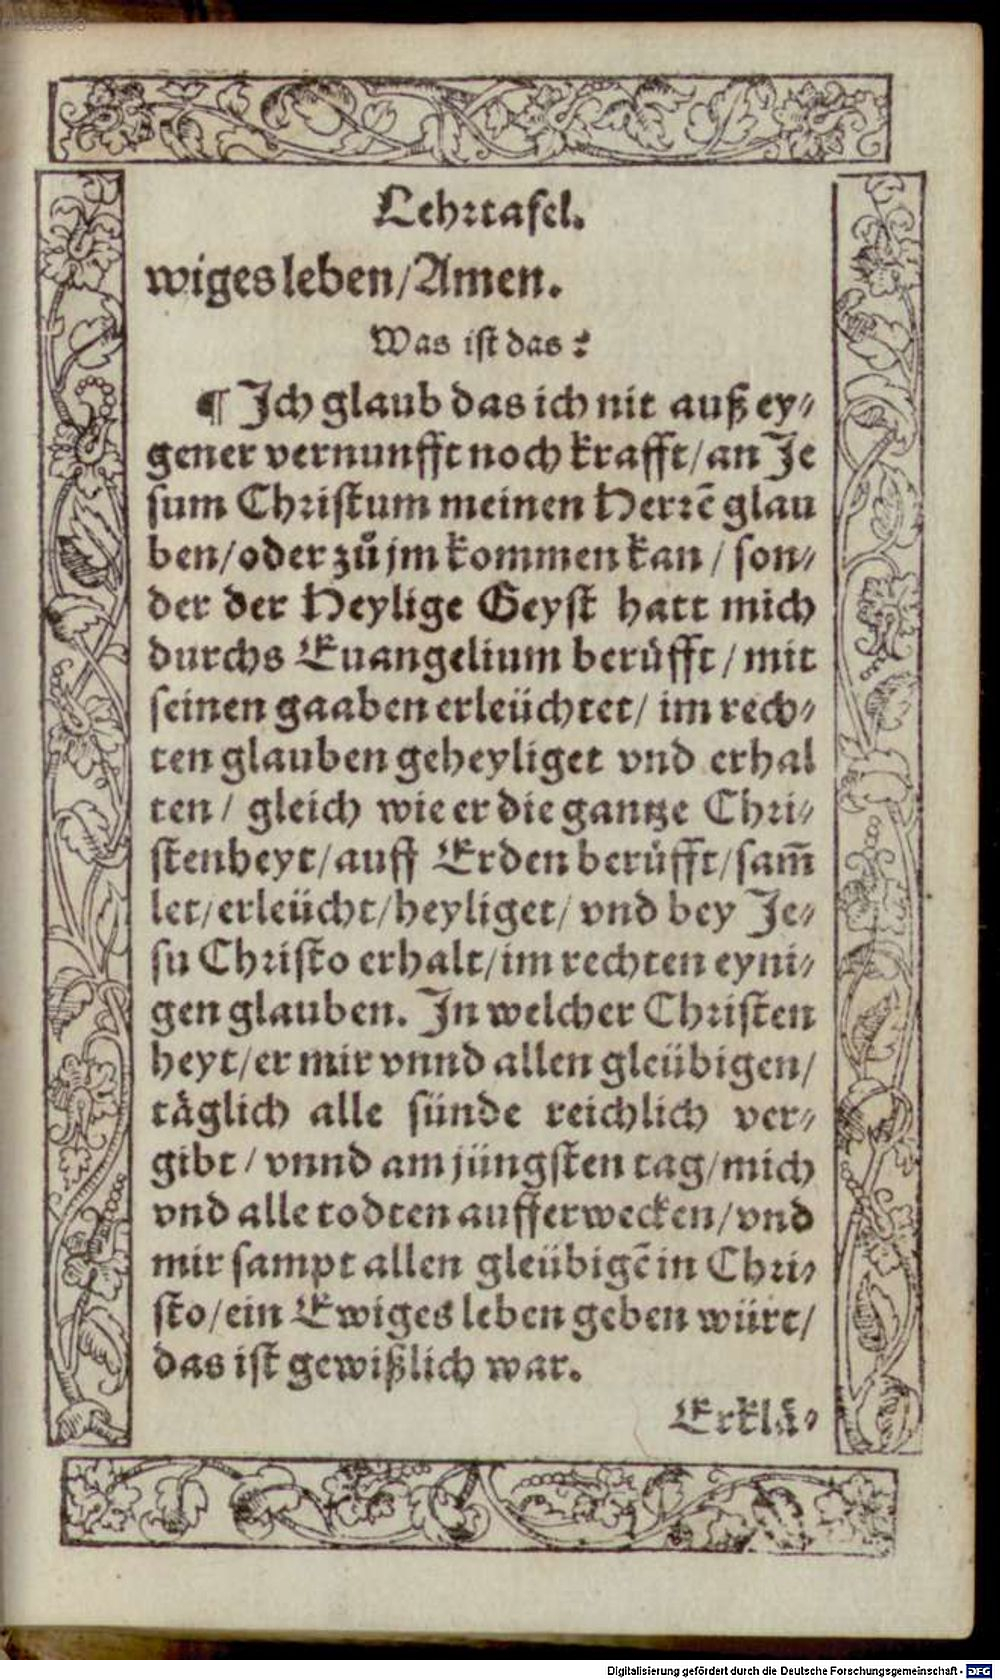 Lehrtafel.
wiges leben/Amen.
Was ist das?
¶ Ich glaub das ich nit auß ey⸗
gener vernunfft noch krafft/an Je
sum Christum meinen Herrē glau
ben/oder zů jm kommen kan/ son⸗
der der Heylige Geyst hatt mich
durchs Euangelium berůfft/mit
seinen gaaben erleüchtet/ im rech⸗
ten glauben geheyliget vnd erhal
ten/ gleich wie er die gantze Chri⸗
stenheyt/auff Erden berůfft/sam̄
let/erleücht/heyliget/ vnd bey Je⸗
su Christo erhalt/im rechten eyni⸗
gen glauben. In welcher Christen
heyt/er mir vnnd allen gleübigen/
täglich alle sünde reichlich ver⸗
gibt/vnnd am jüngsten tag/mich
vnd alle todten aufferwecken/vnd
mir sampt allen gleübigē in Chri⸗
sto/ein Ewiges leben geben würt/
das ist gewißlich war.
Erklä⸗
Digitalisierung gefördert durch die Deutsche Forschungsgemeinschaft - DFG